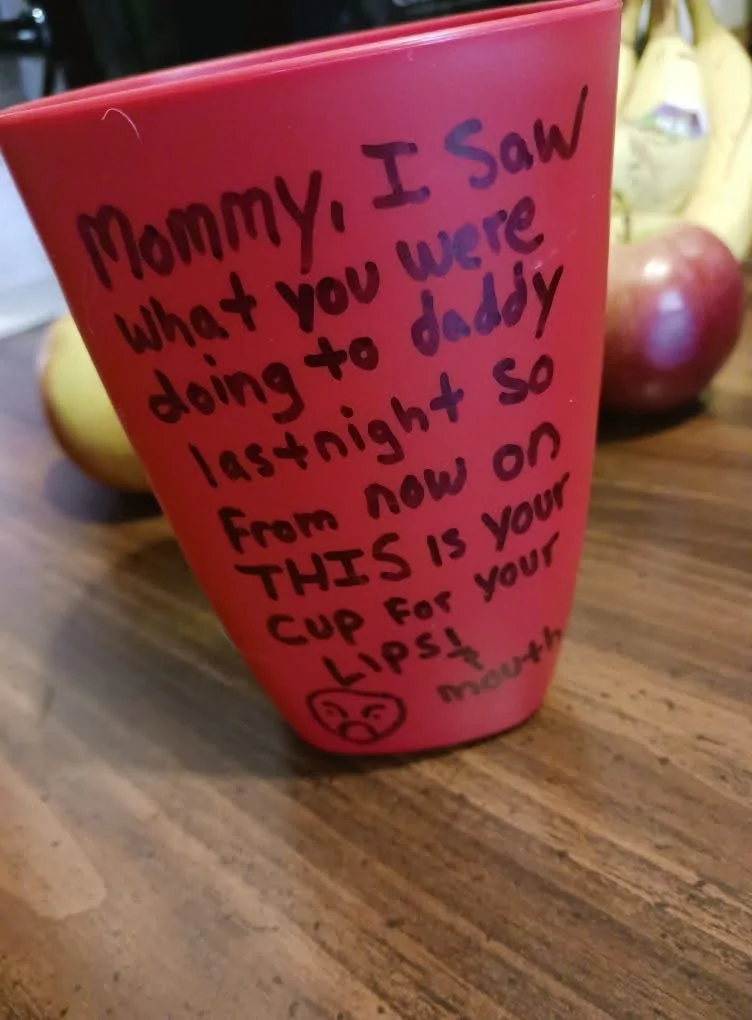 Mommy, I Saw
what you were
doing to daddy
lastnight so
From now on
THIS is your
cup For your
Lips &
mouth